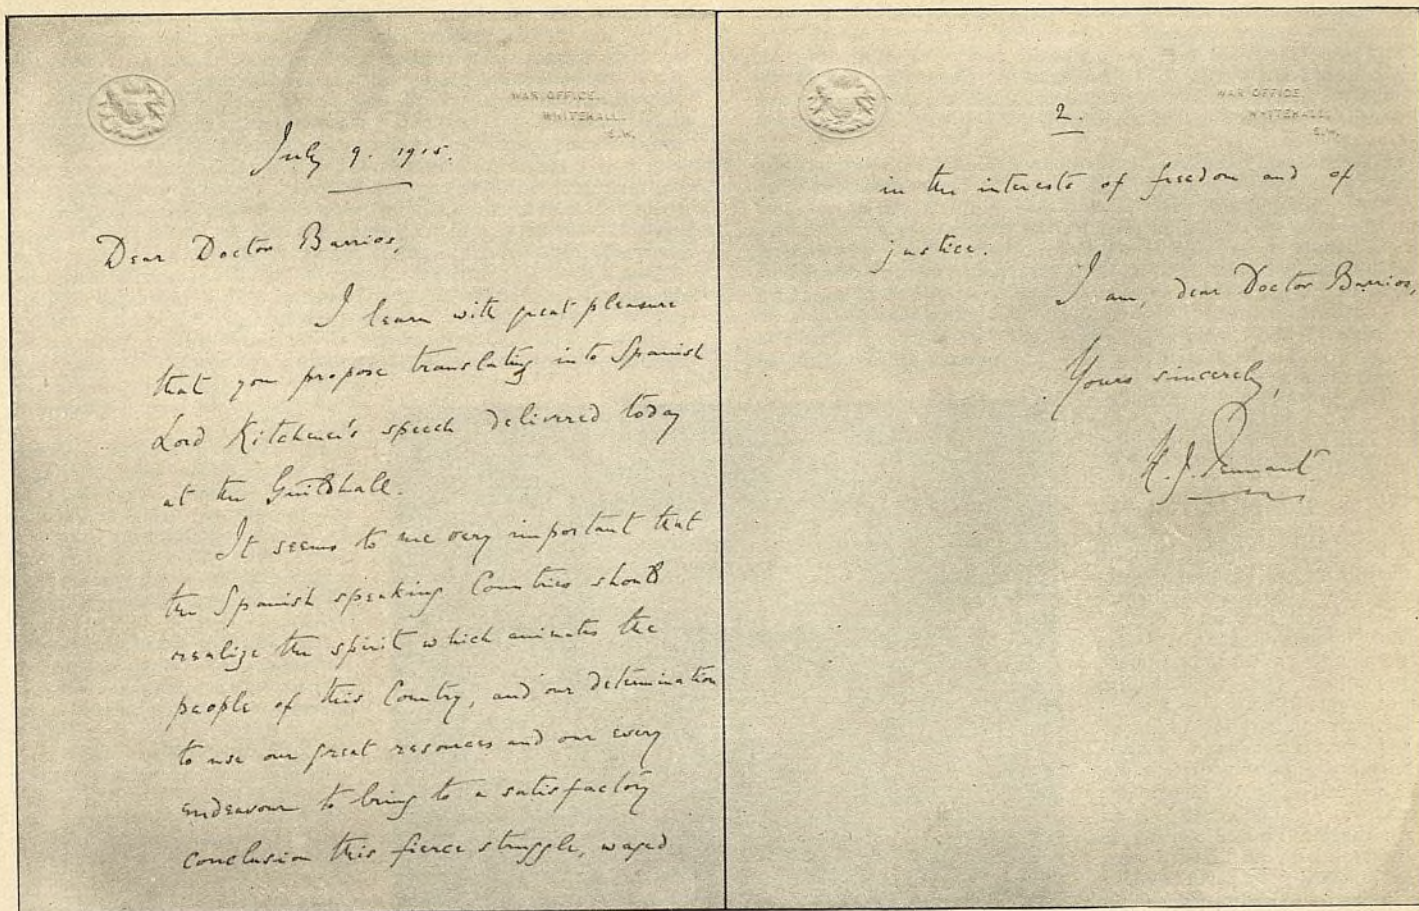 WAR OFFICE,
WHITEHALL,
S.W.
July 9. 1915.
Dear Doctor Barrios,
I learn with great pleasure
that you propose translating into Spanish
Lord Kitchener's speech delivered today
at the Guildhall.
It seems to me very important that
the Spanish speaking Countries should
realize the spirit which animates the
people of this Country, and our determination
to use our great resources and our every
endeavour to bring to a satisfactory
conclusion this fierce struggle, waged
WAR OFFICE,
WHITEHALL,
S.W.
2.
in the interests of freedom and of
justice.
I am, dear Doctor Barrios,
Yours sincerely,
H. J. Tennant